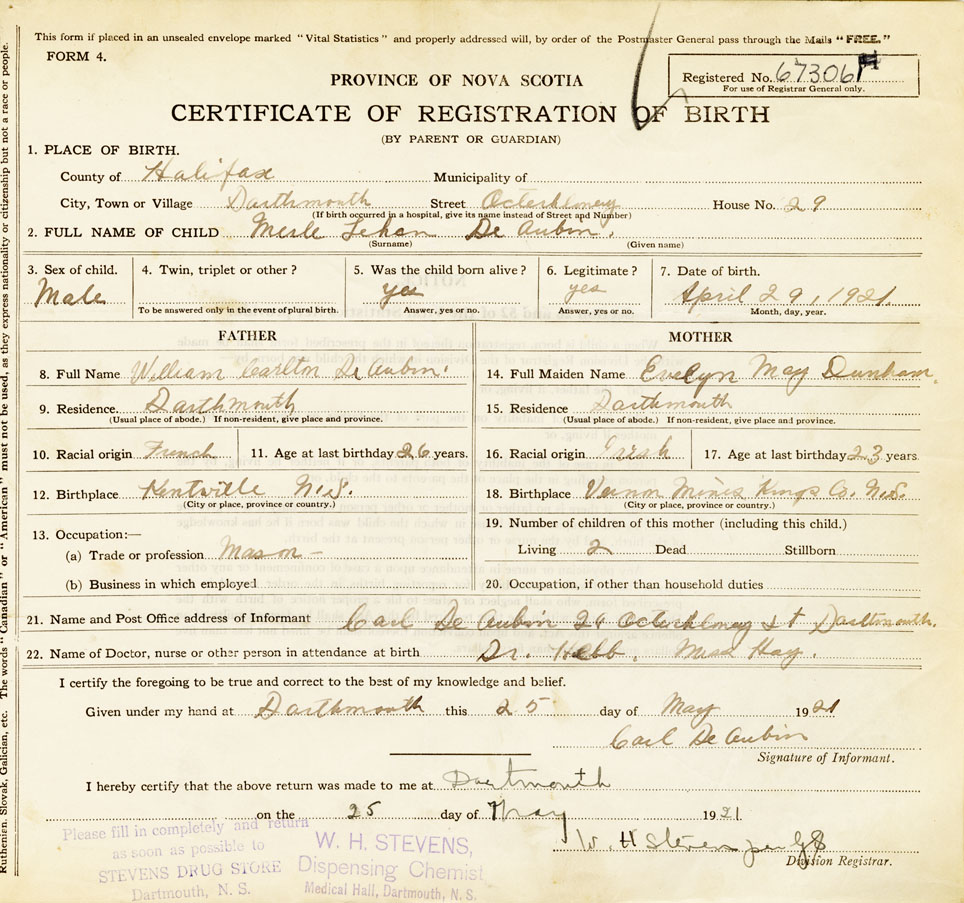 This form if placed in an unsealed envelope marked "Vital Statistics" and properly addressed will, by order of the Postmaster General pass through the Mails "FREE."
FORM 4.
Registered No. 67306
For use of Registrar General only.
PROVINCE OF NOVA SCOTIA
CERTIFICATE OF REGISTRATION OF BIRTH
(BY PARENT OR GUARDIAN)
1. PLACE OF BIRTH.
County of Halifax Municipality of
City, Town or Village Darthmouth Street Octerhloney House No. 29
(If birth occurred in a hospital, give its name instead of Street and Number)
2. FULL NAME OF CHILD Merle Lehan De Aubin.
(Surname) (Given name)
3. Sex of child. 4. Twin, triplet or other? 5. Was the child born alive? 6. Legitimate? 7. Date of birth.
Male yes yes April 29, 1921
To be answered only in the event of plural birth. Answer, yes or no. Answer, yes or no. Month, day, year.
FATHER MOTHER
8. Full Name William Carlton De Aubin. 14. Full Maiden Name Evelyn May Dunham.
9. Residence. Darthmouth 15. Residence Darthmouth
(Usual place of abode.) If non-resident, give place and province. (Usual place of abode.) If non-resident, give place and province.
10. Racial origin French 11. Age at last birthday 26 years. 16. Racial origin Irish 17. Age at last birthday 23 years.
12. Birthplace Kentville N.S. 18. Birthplace Vernon Mines Kings Co. N.S.
(City or place, province or country.) (City or place, province or country.)
13. Occupation:— 19. Number of children of this mother (including this child.)
(a) Trade or profession Mason — Living 2 Dead Stillborn
(b) Business in which employed 20. Occupation, if other than household duties
21. Name and Post Office address of Informant Carl De Aubin Octerhloney St Dartmouth.
22. Name of Doctor, nurse or other person in attendance at birth Dr. Hebb, Miss Hay.
I certify the foregoing to be true and correct to the best of my knowledge and belief.
Given under my hand at Darthmouth this 25 day of May 1921
Carl De Aubin
Signature of Informant.
I hereby certify that the above return was made to me at Dartmouth
on the 25 day of May 1921
W. H Stevens per
Division Registrar.
Please fill in completely and return
as soon as possible to
STEVENS DRUG STORE
Dartmouth, N. S.
W. H. STEVENS,
Dispensing Chemist
Medical Hall, Dartmouth, N. S.
Ruthenian, Slovak, Galician, etc. The words "Canadian" or "American" must not be used, as they express nationality or citizenship but not a race or people.